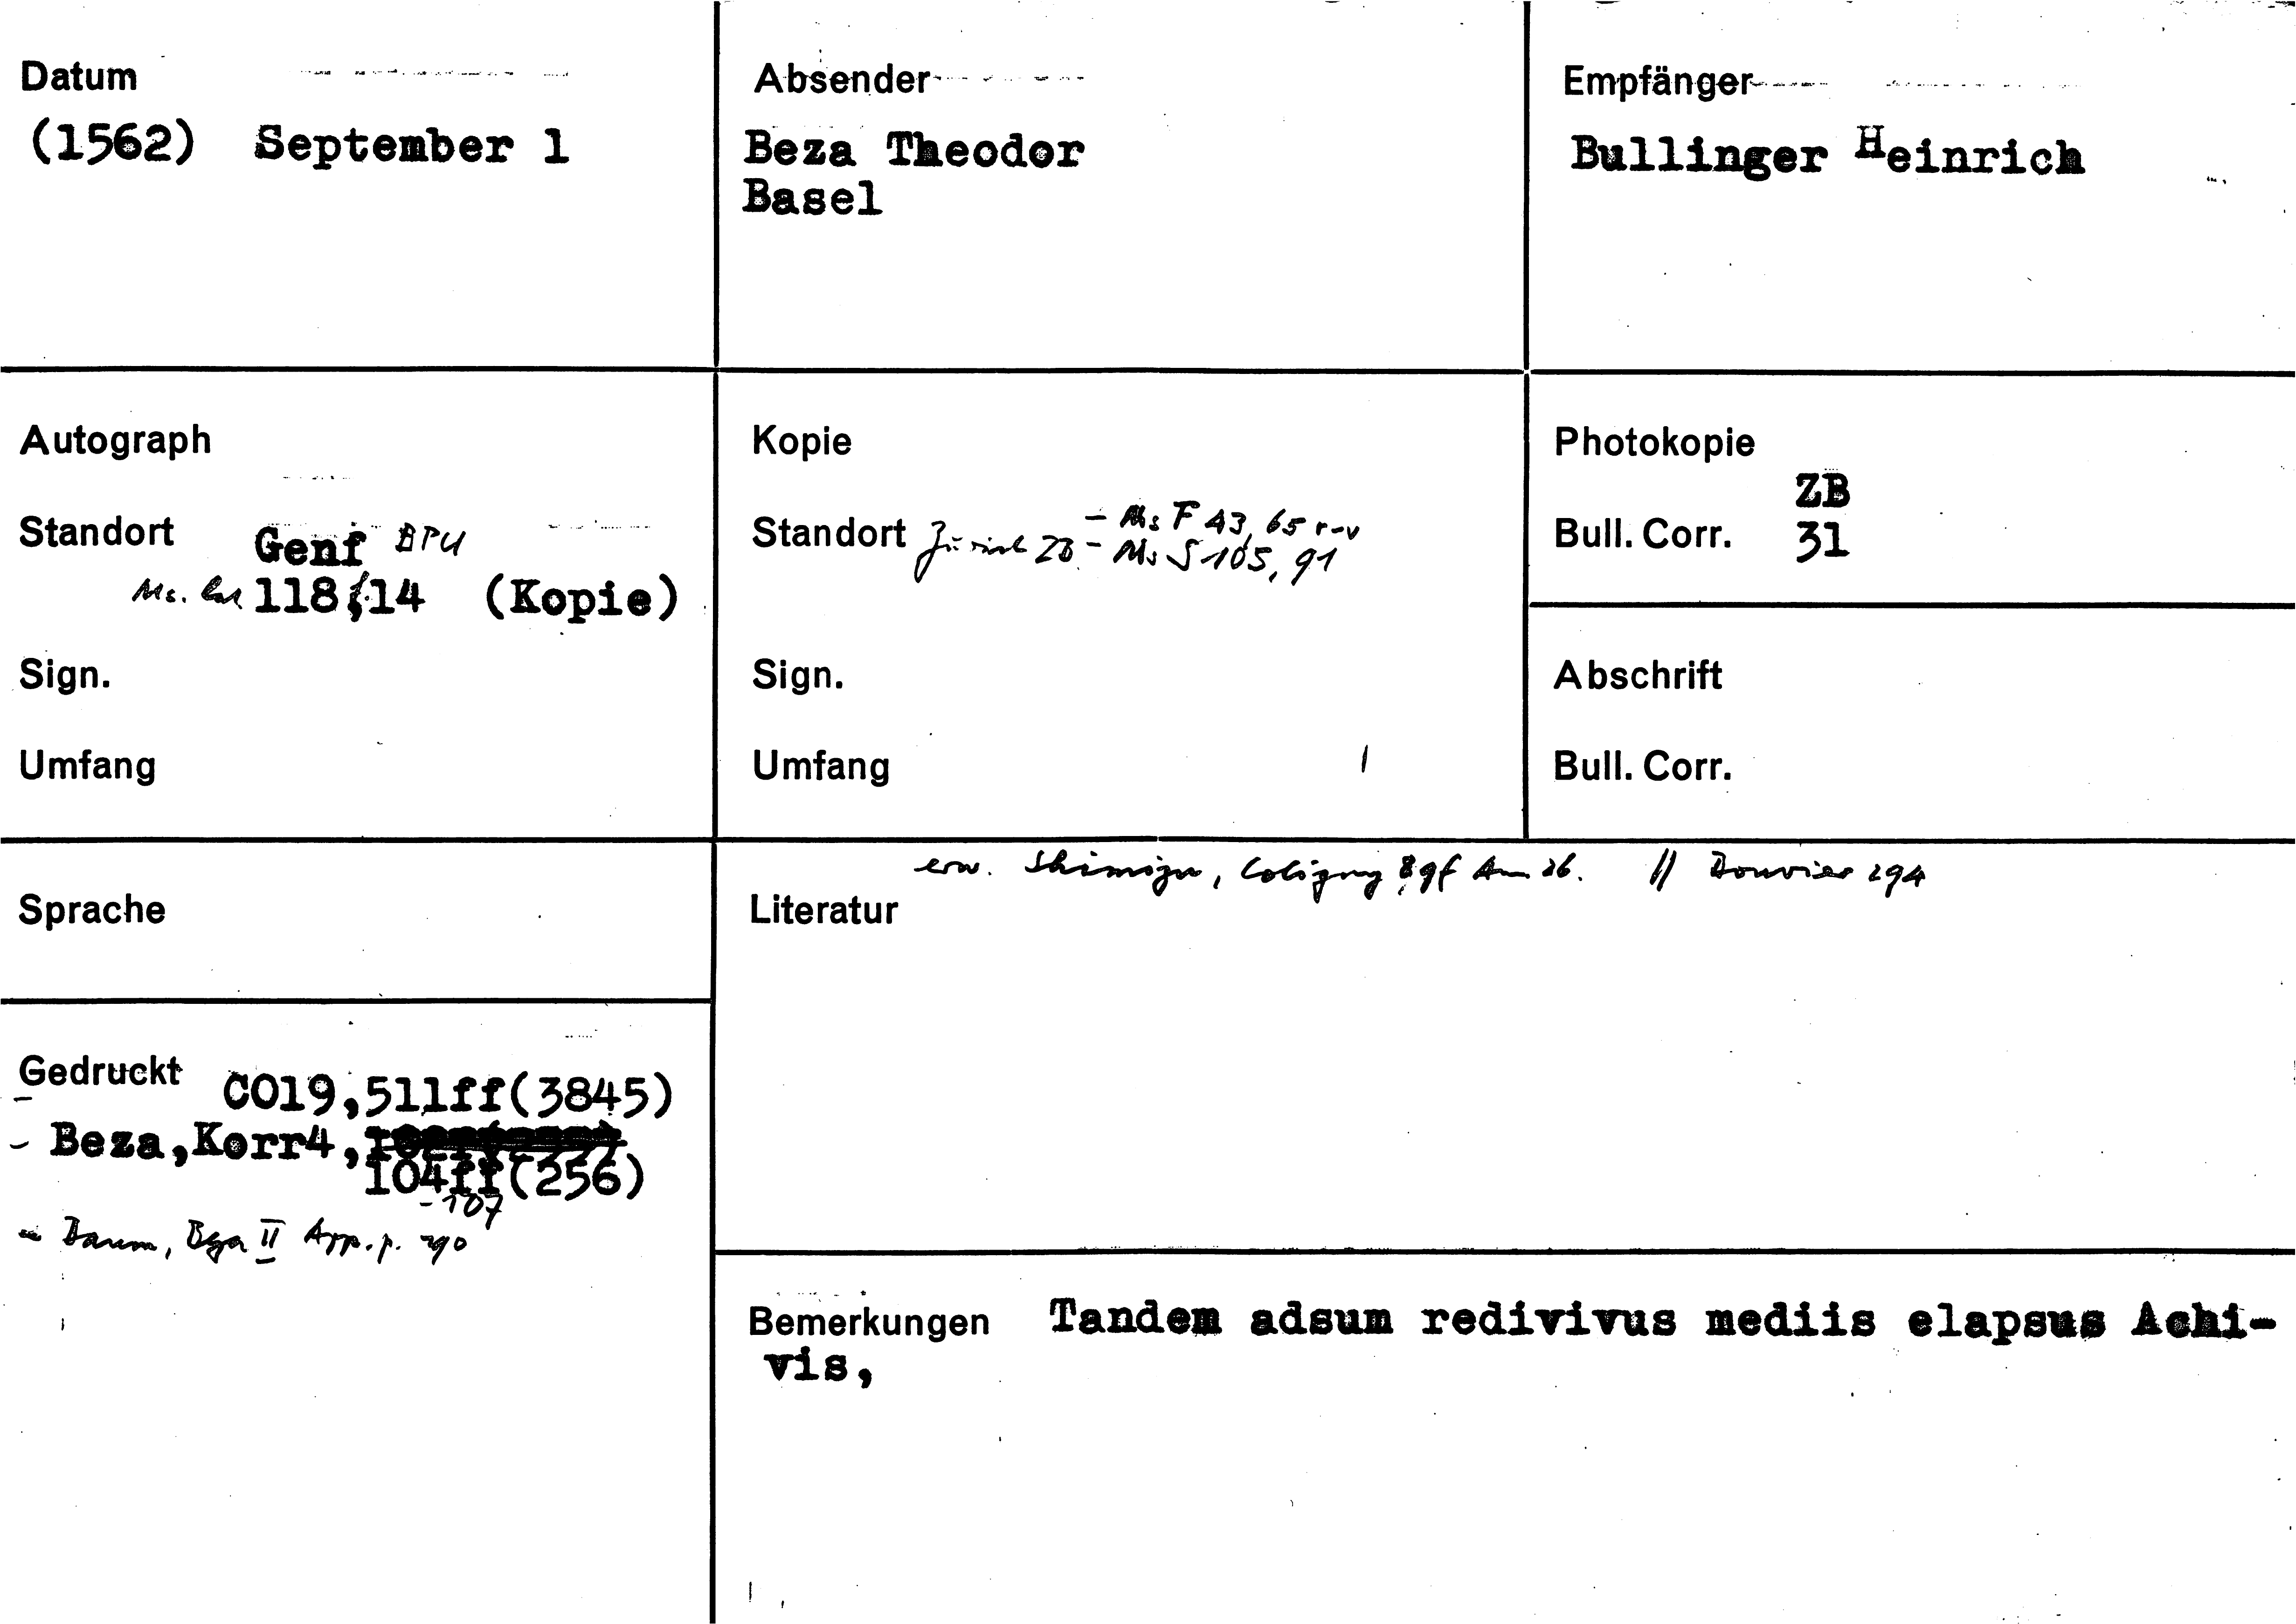 Datum
(1562) September 1
Absender
Beza Theodor
Basel
Empfänger
Bullinger Heinrich
Autograph
Standort Genf BPU
Ms. lat 118 f.14 (Kopie)
Sign.
Umfang
Kopie
- Ms F 43, 65 r-v
Standort Zürich ZB - Ms S 105, 91
Sign.
Umfang
Photokopie
ZB
Bull. Corr. 31
Abschrift
Bull. Corr.
Sprache
erw. Shimizu, Coligny 89f Anm 26. // Bouvier 294
Literatur
Gedruckt
- CO19,511ff(3845)
- Beza,Korr4,
104ff(256)
-107
- Baum, Beza II App. p. 190
Bemerkungen Tandem adsum redivivus mediis elapsus Achi-
vis,